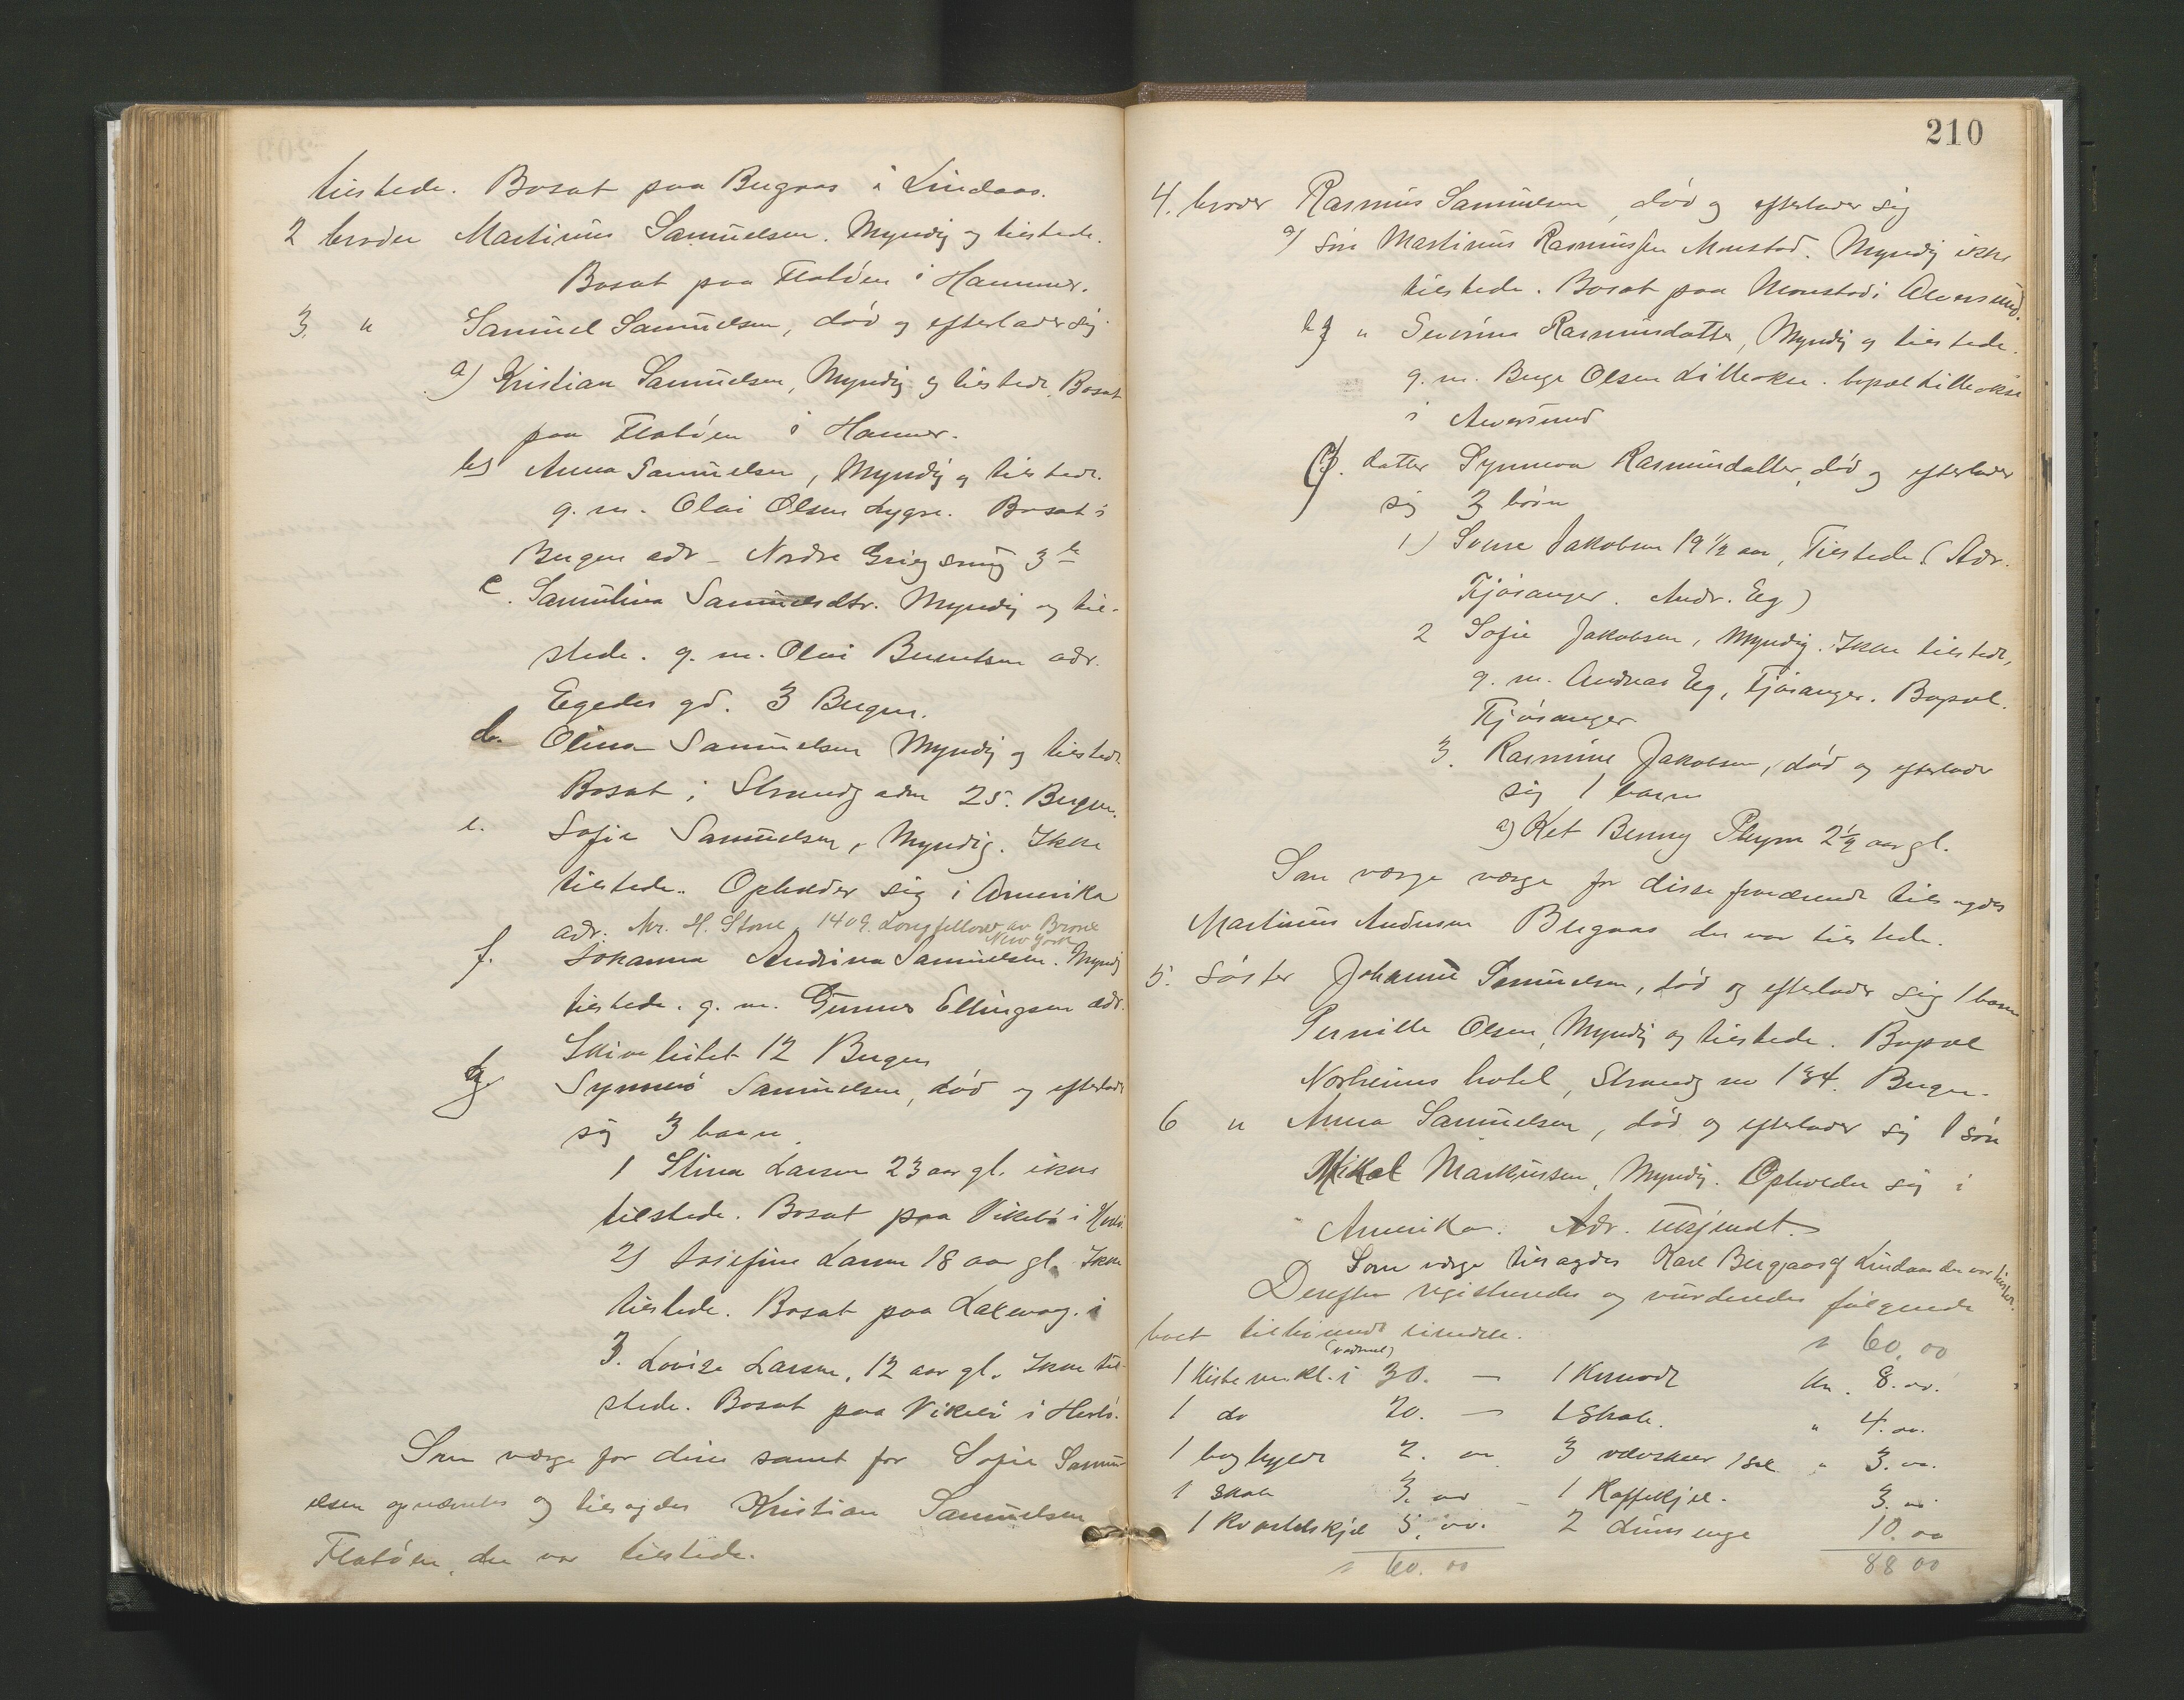 tilstede. Bosat paa Bergaas i Lindaas.
2 broder Martinus Samuelsen. Myndig og tilstede.
Bosat paa Flatöen i Hammer.
3. " Samuel Samuelsen, död og efterlader sig
a) Kristian Samuelsen, Myndig og tilstede. Bosat
paa Flatöen i Hamer.
b) Anna Samuelsen, Myndig og tilstede.
g. m. Olai Olsen Lygre. Bosat i
Bergen adr - Nordre Griegsmug 3
c. Samuline Samuelsdtr. Myndig og til-
stede. g. m. Olai Berentsen adr.
Egedes gd. 3 Bergen.
d. Olina Samuelsen Myndig og tilstede
Bosat i Strandgaden 25. Bergen.
e. Sofie Samuelsen, Myndig. Ikke
tilstede. Opholder sig i Amerika
adr. Mr. H. Stone, 1409. Longfellow av Bronx
New York
f. Johanna Andrina Samuelsen. Myndig
tilstede. g. m. Gunner Ellingsen adr.
12 Bergen
g Synneve Samuelsen, död og efterlader
sig 3 barn.
1 Stina Larsen 23 aar gl. ikke
tilstede. Bosat paa Vikebö i Herlö.
2) Josefine Larsen 18 aar gl. Ikke
tilstede. Bosat paa Laxevag. i
3. Lovise Larsen, 12 aar gl. Ikke til-
stede. Bosat paa Vikebö i Herlö.
Som værge for disse samt for Sofie Samu-
elsen opnævntes og tilsagdes Kristian Samuelsen
Flatöen, der var tilstede.
210
4. broder Rasmus Samuelsen, död og efterlader sig
a) Sön Martinus Rasmussen Monstad. Myndig ikke
tilstede. Bosat paa Monstad i Alversund.
b) " Severine Rasmusdatter, Myndig og tilstede.
g. m. Berge Olsen Lilleoxe. bopæl Lilleoxe
i Alversund
c). datter Synneva Rasmusdatter, död og efterlader
sig 3 börn
1) Sverre Jakobsen 19 1/2 aar, Tilstede (Adr.
Fjösanger. Andr. Eeg)
2 Sofie Jakobsen, Myndig. Ikke tilstede,
g. m. Andreas Eeg, Fjösanger. Bopæl.
Fjösanger
3. Rasmine Jakobsen, död og efterlader
sig 1 barn
a) Benny 2 1/2 aar gl.
Som værge værge for disse fraværende tilsagdes
Martinus Andersen Bergaas der var tilstede.
5. Söster Johanne Samuelsen, död og efterlader sig 1 barn
Pernille Olsen, Myndig og tilstede. Bopæl
Norheims hotel, Strandg no 134. Bergen.
6 " Anna Samuelsen, död og efterlader sig 1 sön
Mikal Markussen, Myndig. Opholder sig i
Amerika. Adr. ukjendt.
Som værge tilsagdes Karl Bergaas af Lindaas der var tilstede.
Derefter registreredes og vurderedes fölgende
boet tilhörende eiendele.
" 60,00
(vadmel)
1 Kiste m. kl. i 30. — 1 Kr. 8.00.
1 do 20. — 1 Skab. " 4.00.
1 boghylde 2. 00 3 vævskeer 1 sæl " 3.00.
1 Skab 3. 00 – 1 Kaffekjel. 3.00
1 5.00. 2 10.00
" 60.00
88 00